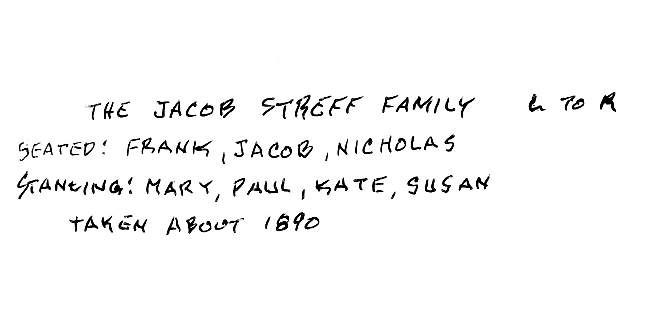 THE JACOB STREFF FAMILY L TO R
SEATED: FRANK, JACOB, NICHOLAS
STANDING: MARY, PAUL, KATE, SUSAN
TAKEN ABOUT 1890